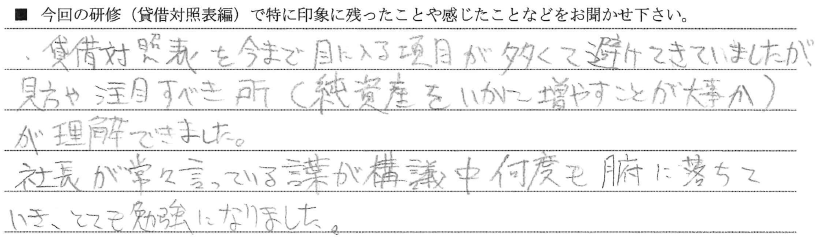 ■ 今回の研修（貸借対照表編）で特に印象に残ったことや感じたことなどをお聞かせ下さい。
・貸借対照表を今まで目に入る項目が多くて避けてきていましたが、
見方や注目すべき所（純資産をいかに増やすことが大事か）
が理解できました。
社長が常々言っている言葉が構議中何度も腑に落ちて
いき、とても勉強になりました。